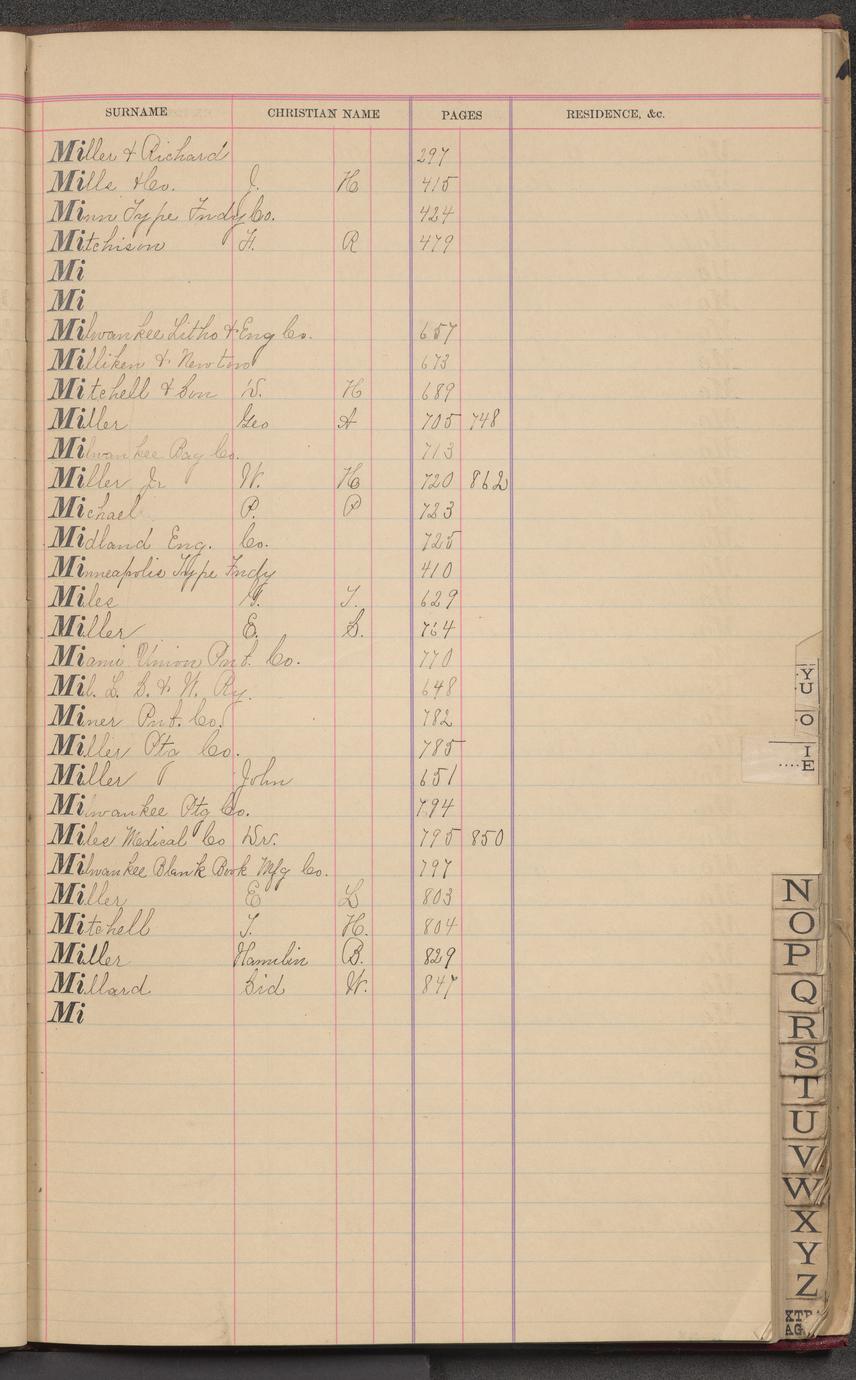 SURNAME CHRISTIAN NAME PAGES RESIDENCE, &c.
Miller & Richard 297
Mills & Co. J. H 415
Minn Type Fndy Co. 424
Mitchison F. R 479
Mi
Mi
Milwaukee Litho & Eng Co. 657
Milliken & Newton 673
Mitchell & Son W. H 689
Miller Geo A 705 748
Milwaukee Bag Co. 713
Miller Jr W. H 720 862
Michael P. P 723
Midland Eng. Co. 725
Minneapolis Type Fndy 410
Miles T. 629
Miller E. S. 764
Miami Union Pub. Co. 770
Mil. L. S. & W. Ry. 648
Miner Pub. Co. 782
Miller Ptg Co. 785
Miller John 651
Milwaukee Ptg Co. 794
Miles Medical Co Dr. 795 850
Milwaukee Blank Book Mfg Co. 797
Miller E L 803
Mitchell T. H. 804
Miller Hamilin B. 829
Millard Sid W. 847
Mi
YU
O
IE
N
O
P
Q
R
S
T
U
V
W
X
Y
Z